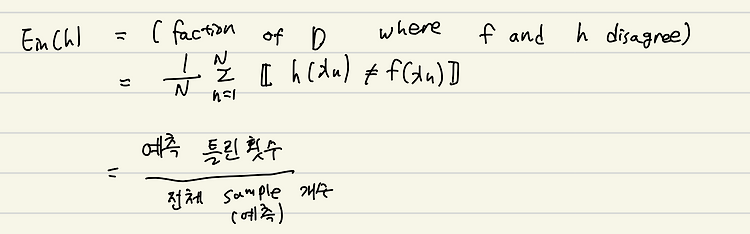 Ein(h) = (faction of D where f and h disagree)
= 1/N N Σ n=1 ⟦ h(xn) ≠ f(xn) ⟧
= 예측 틀린 횟수
전체 sample 개수
(예측)